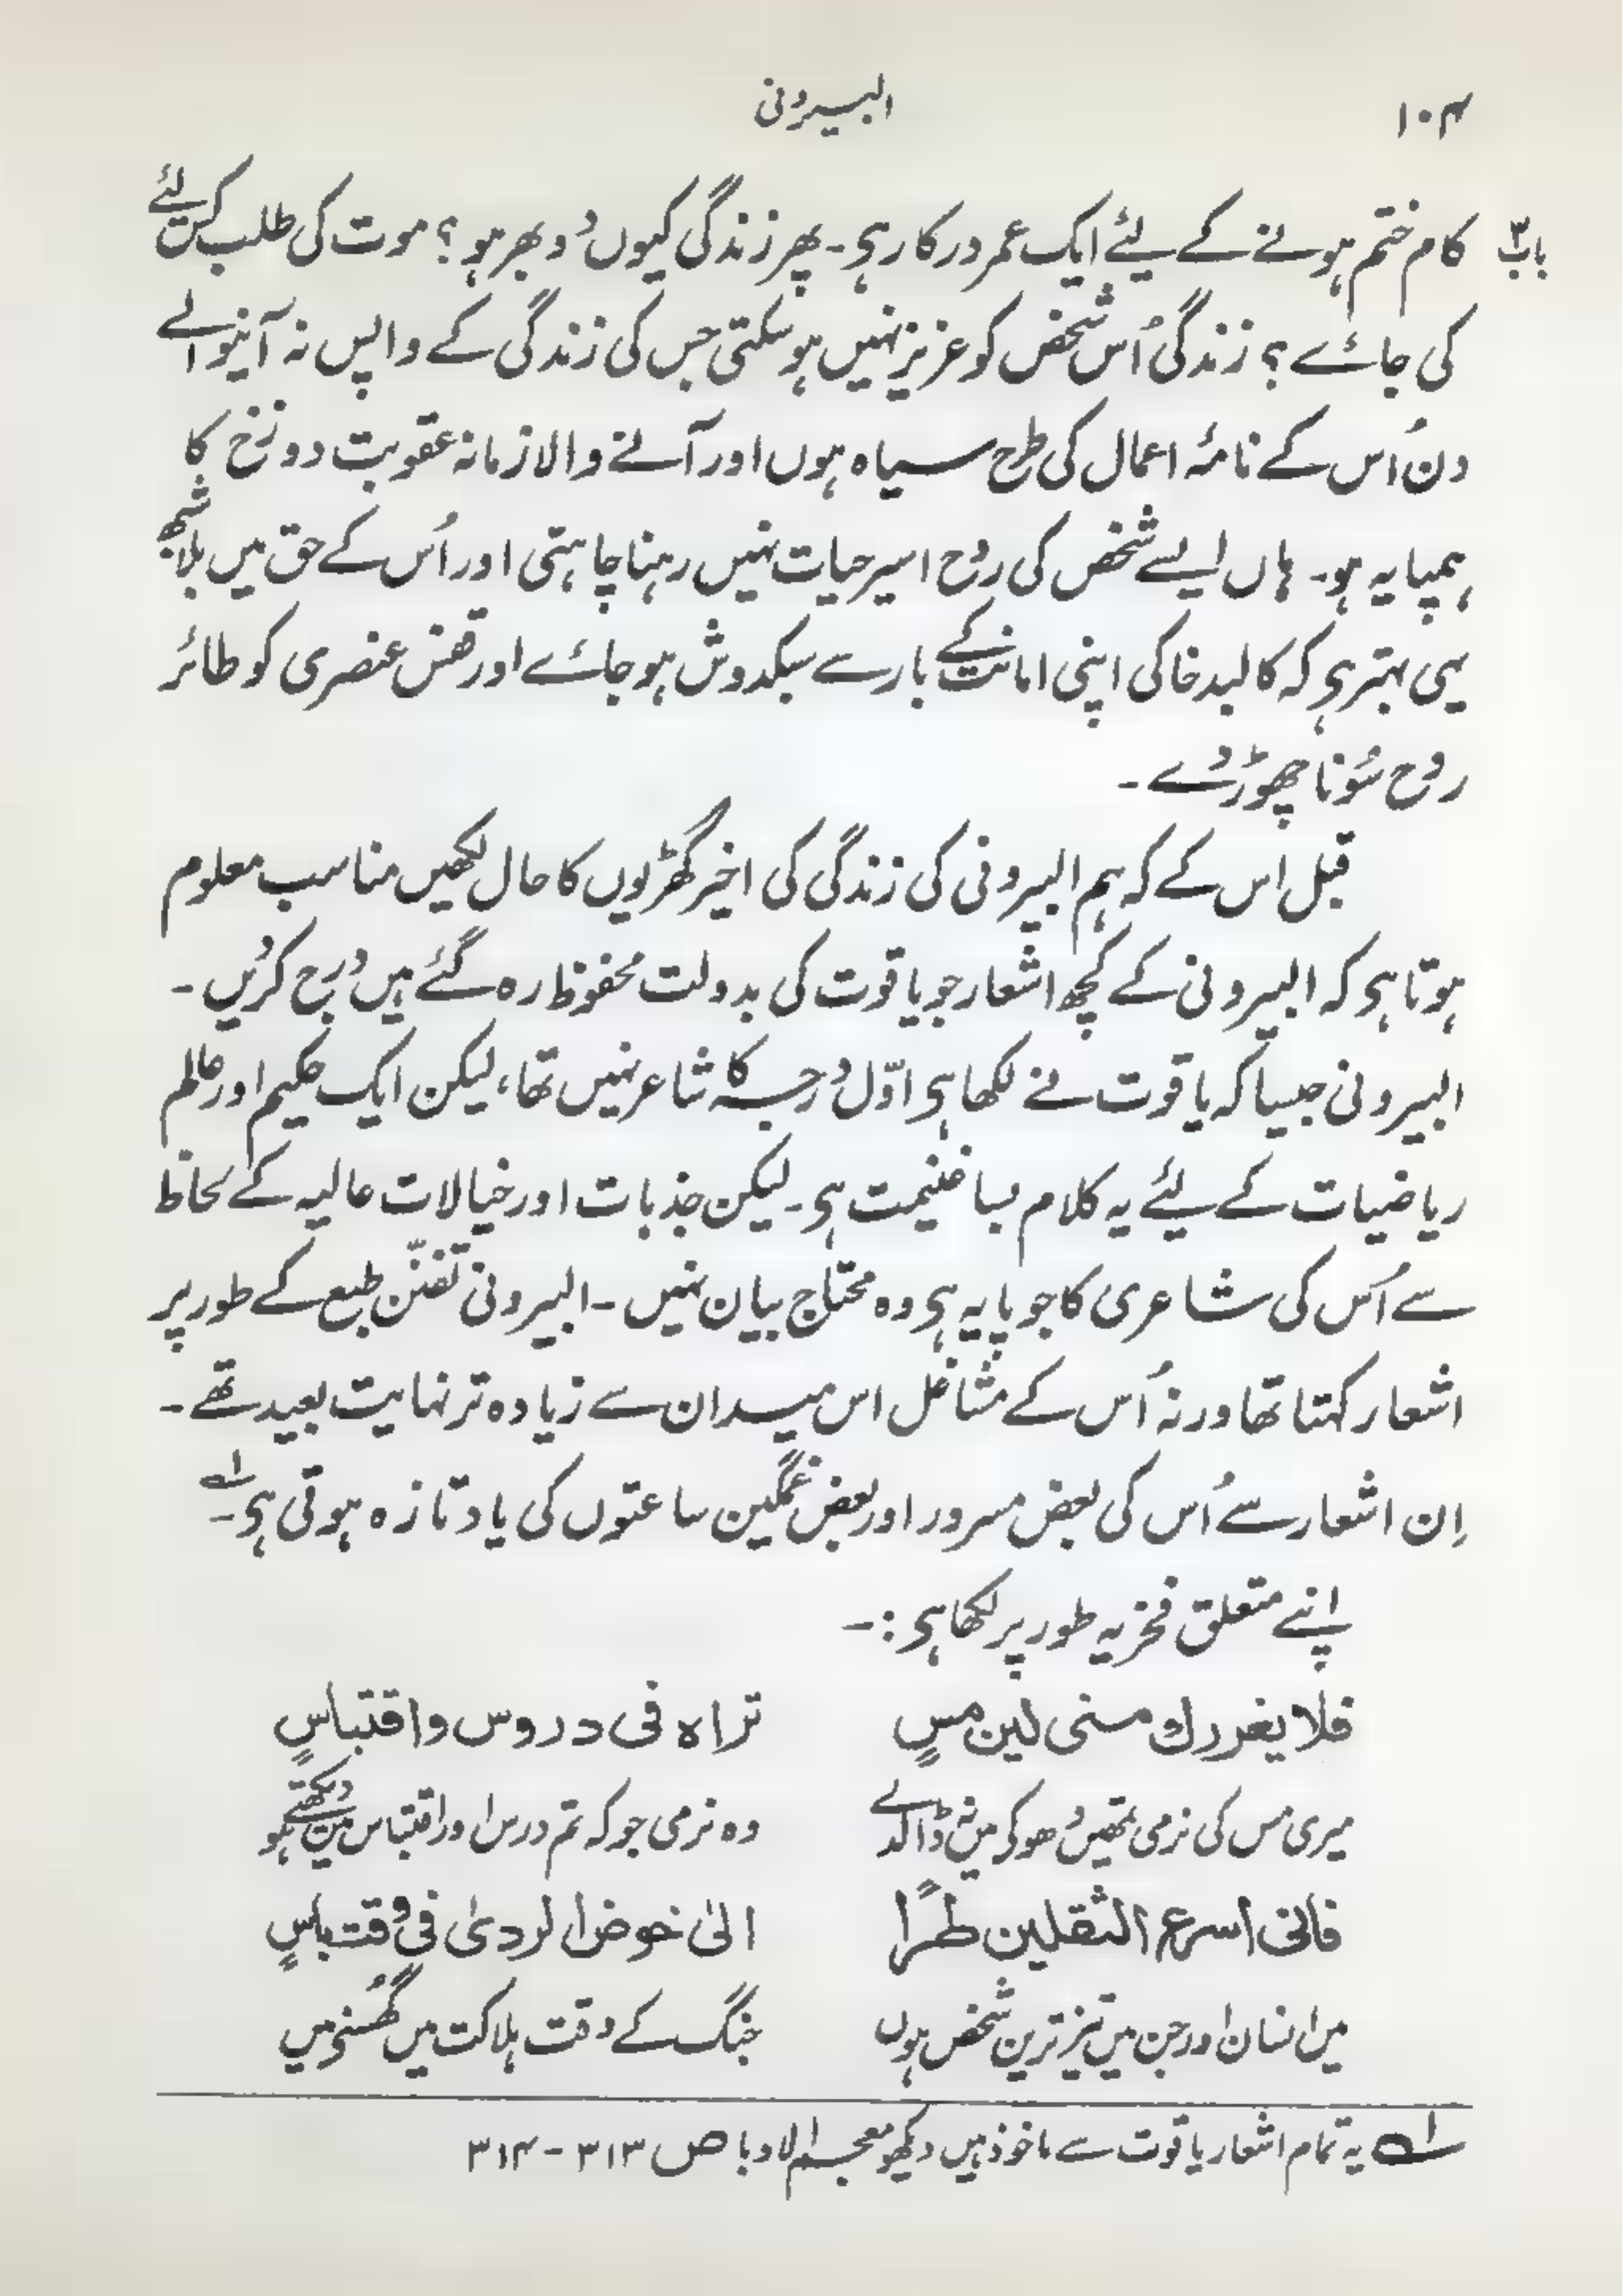 ۱۰۴
البیرونی
باب ۳
کام ختم ہونے کے لیئے ایک عمر درکار ہی۔ پھر زندگی کیوں دوبھر ہو؟ موت کی طلب کس لئے
کی جائے؟ زندگی اُس شخص کو عزیز نہیں ہوسکتی جس کی زندگی کے واپس نہ آنیوالے
دن اُس کے نامۂ اعمال کی طرح سیاہ ہوں اور آنے والا زمانہ عقوبت دوزخ کا
ہمپایہ ہو۔ ہاں ایسے شخص کی روح اسیر حیات نہیں رہنا چاہتی اور اُس کے حق میں بلاشبھ
یہی بہتر ہی کہ کالبد خاکی اپنی امانت کے بار سے سبکدوش ہوجائے اور قفس عنصری کو طائر
روح سُونا چھوڑ دے۔
قبل اس کے کہ ہم البیرونی کی زندگی کی اخیر گھڑیوں کا حال لکھیں مناسب معلوم
ہوتا ہی کہ البیرونی کے کچھ اشعار جو یاقوت کی بدولت محفوظ رہ گئے ہیں درج کریں۔
البیرونی جیسا کہ یاقوت نے لکھا ہی اوّل درجہ کا شاعر نہیں تھا، لیکن ایک حکیم اور عالم
ریاضیات کے لیئے یہ کلام بسا غنیمت ہی۔ لیکن جذبات اور خیالات عالیہ کے لحاظ
سے اُس کی شاعری کا جو پایہ ہی وہ محتاج بیان نہیں۔ البیرونی تفنّن طبع کے طور پر
اشعار کہتا تھا ورنہ اُس کے مشاغل اس میدان سے زیادہ تر نہایت بعید تھے۔
اِن اشعار سے اُس کی بعض مسرور اور بعض غمگین ساعتوں کی یاد تازہ ہوتی ہی۔ لہ
اپنے متعلق فخریہ طور پر لکھا ہی:۔
فلا یغررك منی لین مسٍ تراه فی دروس واقتباسٍ
میری مس کی نرمی تمھیں دھوکی میں نہ ڈالدے وہ نرمی جو کہ تم درس اور اقتباس میں دیکھتے ہو
فانی اسرع الثقلین طرًا الیٰ خوض الردیٰ فی وقت باسٍ
میں انسان اور جن میں تیز ترین شخص ہوں جنگ کے وقت ہلاکت میں گھُسنے میں
لہ یہ تمام اشعار یاقوت سے ماخوذ ہیں دیکھو معجم الادبا ص ۳۱۳-۳۱۴